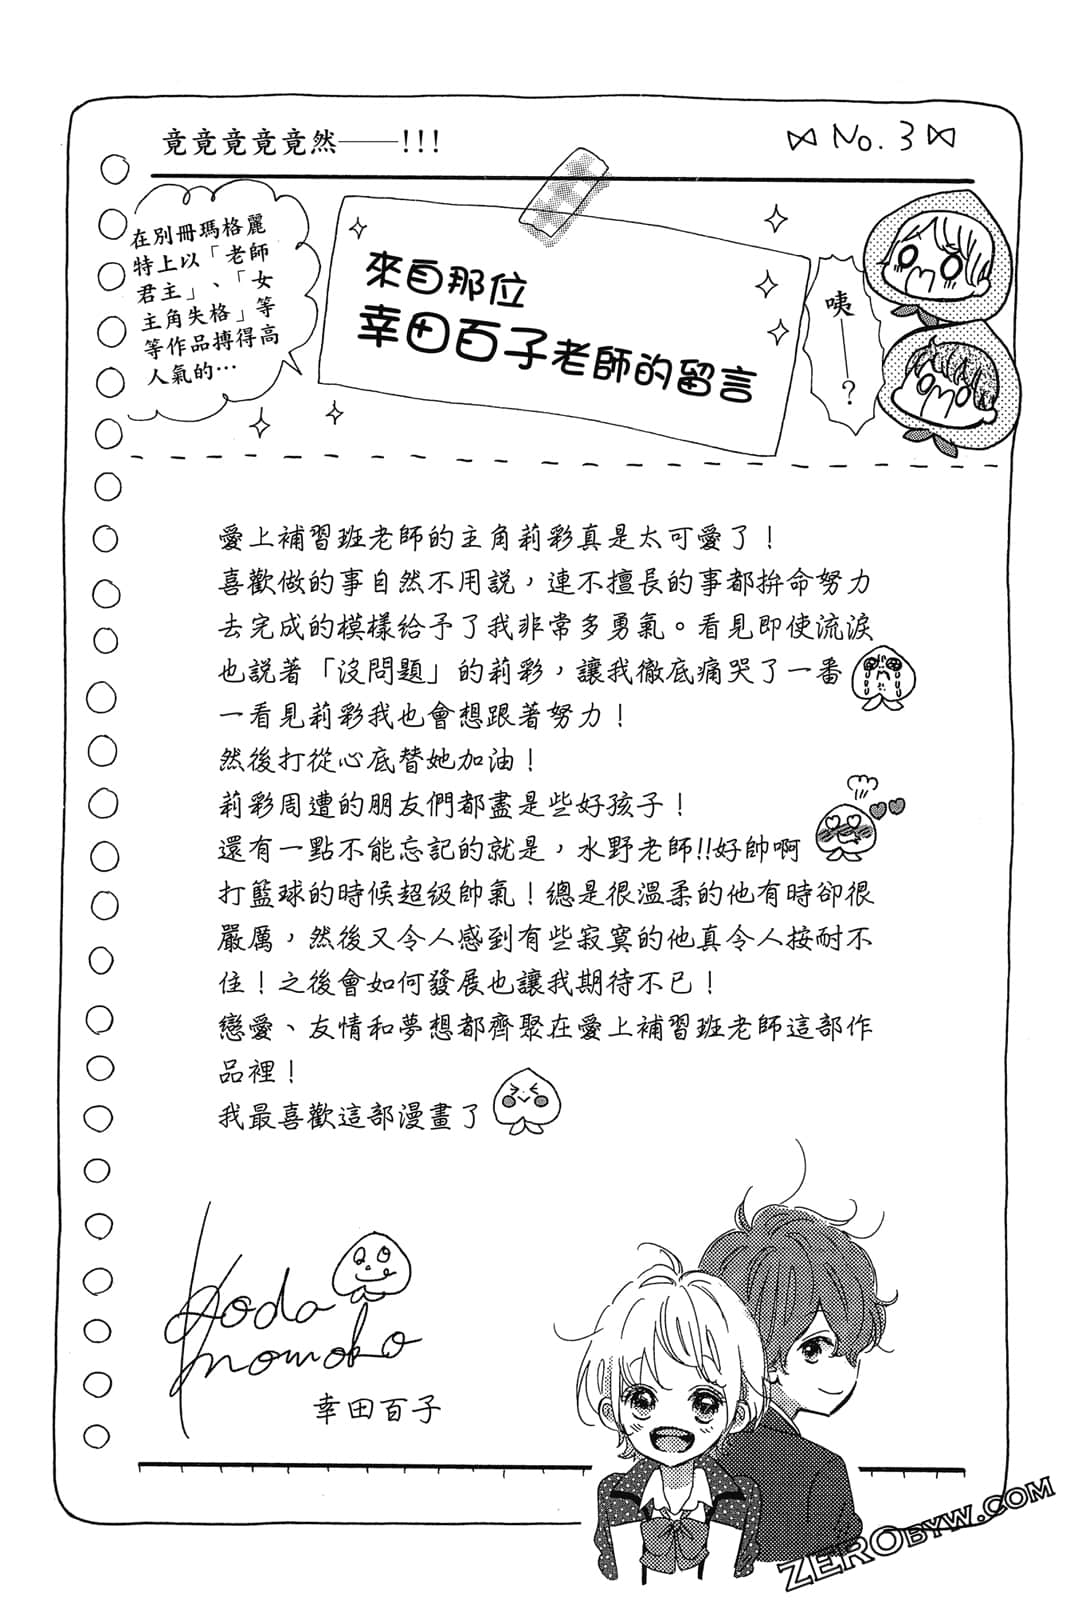 竟竟竟竟竟然——!!!
No. 3
在別冊瑪格麗
特上以「老師
君主」、「女
主角失格」等
等作品搏得高
人氣的…
來自那位
幸田百子老師的留言
咦——?
愛上補習班老師的主角莉彩真是太可愛了!
喜歡做的事自然不用說，連不擅長的事都拚命努力
去完成的模樣給予了我非常多勇氣。看見即使流淚
也說著「沒問題」的莉彩，讓我徹底痛哭了一番
一看見莉彩我也會想跟著努力!
然後打從心底替她加油!
莉彩周遭的朋友們都盡是些好孩子!
還有一點不能忘記的就是，水野老師!!好帥啊
打籃球的時候超級帥氣!總是很溫柔的他有時卻很
嚴厲，然後又令人感到有些寂寞的他真令人按耐不
住!之後會如何發展也讓我期待不已!
戀愛、友情和夢想都齊聚在愛上補習班老師這部作
品裡!
我最喜歡這部漫畫了
Koda
momoko
幸田百子
ZEROBYW.COM